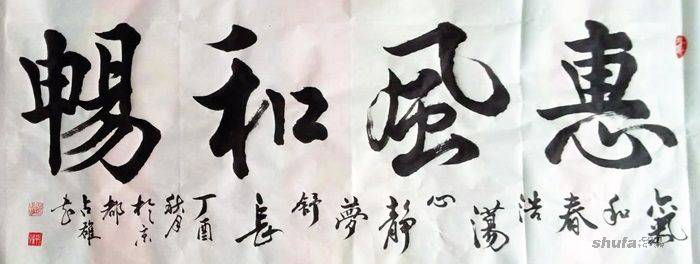 惠風和暢
氣和春浩蕩心靜夢舒長
丁酉秋月於京都占雄書
shufa